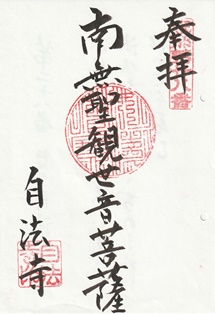 奉拝
南無聖観世音菩薩
自法寺